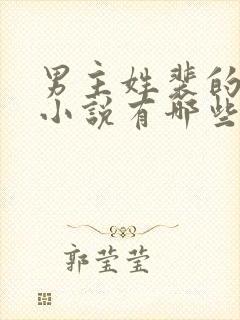 男主姓裴的
小说有哪些
郭莹莹